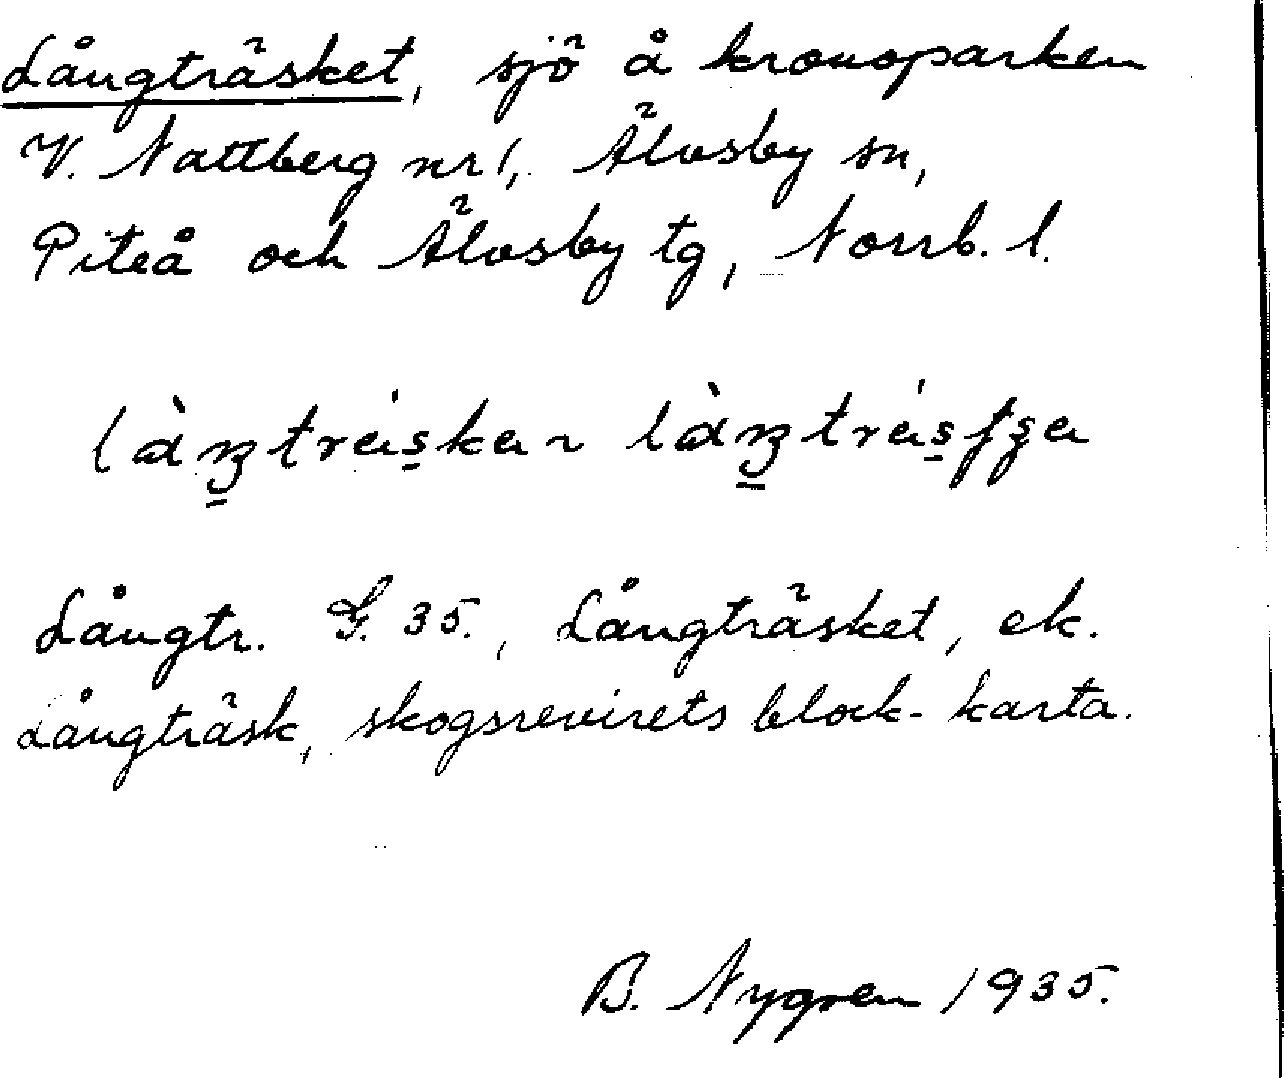 Långträsket, sjö å kronoparken
V. Nattberg nr 1, Älvsby sn,
Piteå och Älvsby tg, Norrb. l.
Långtr. G. 35., Långträsket, ek.
Långträsk, skogsrevirets block-karta.
B. Nygren 1935.